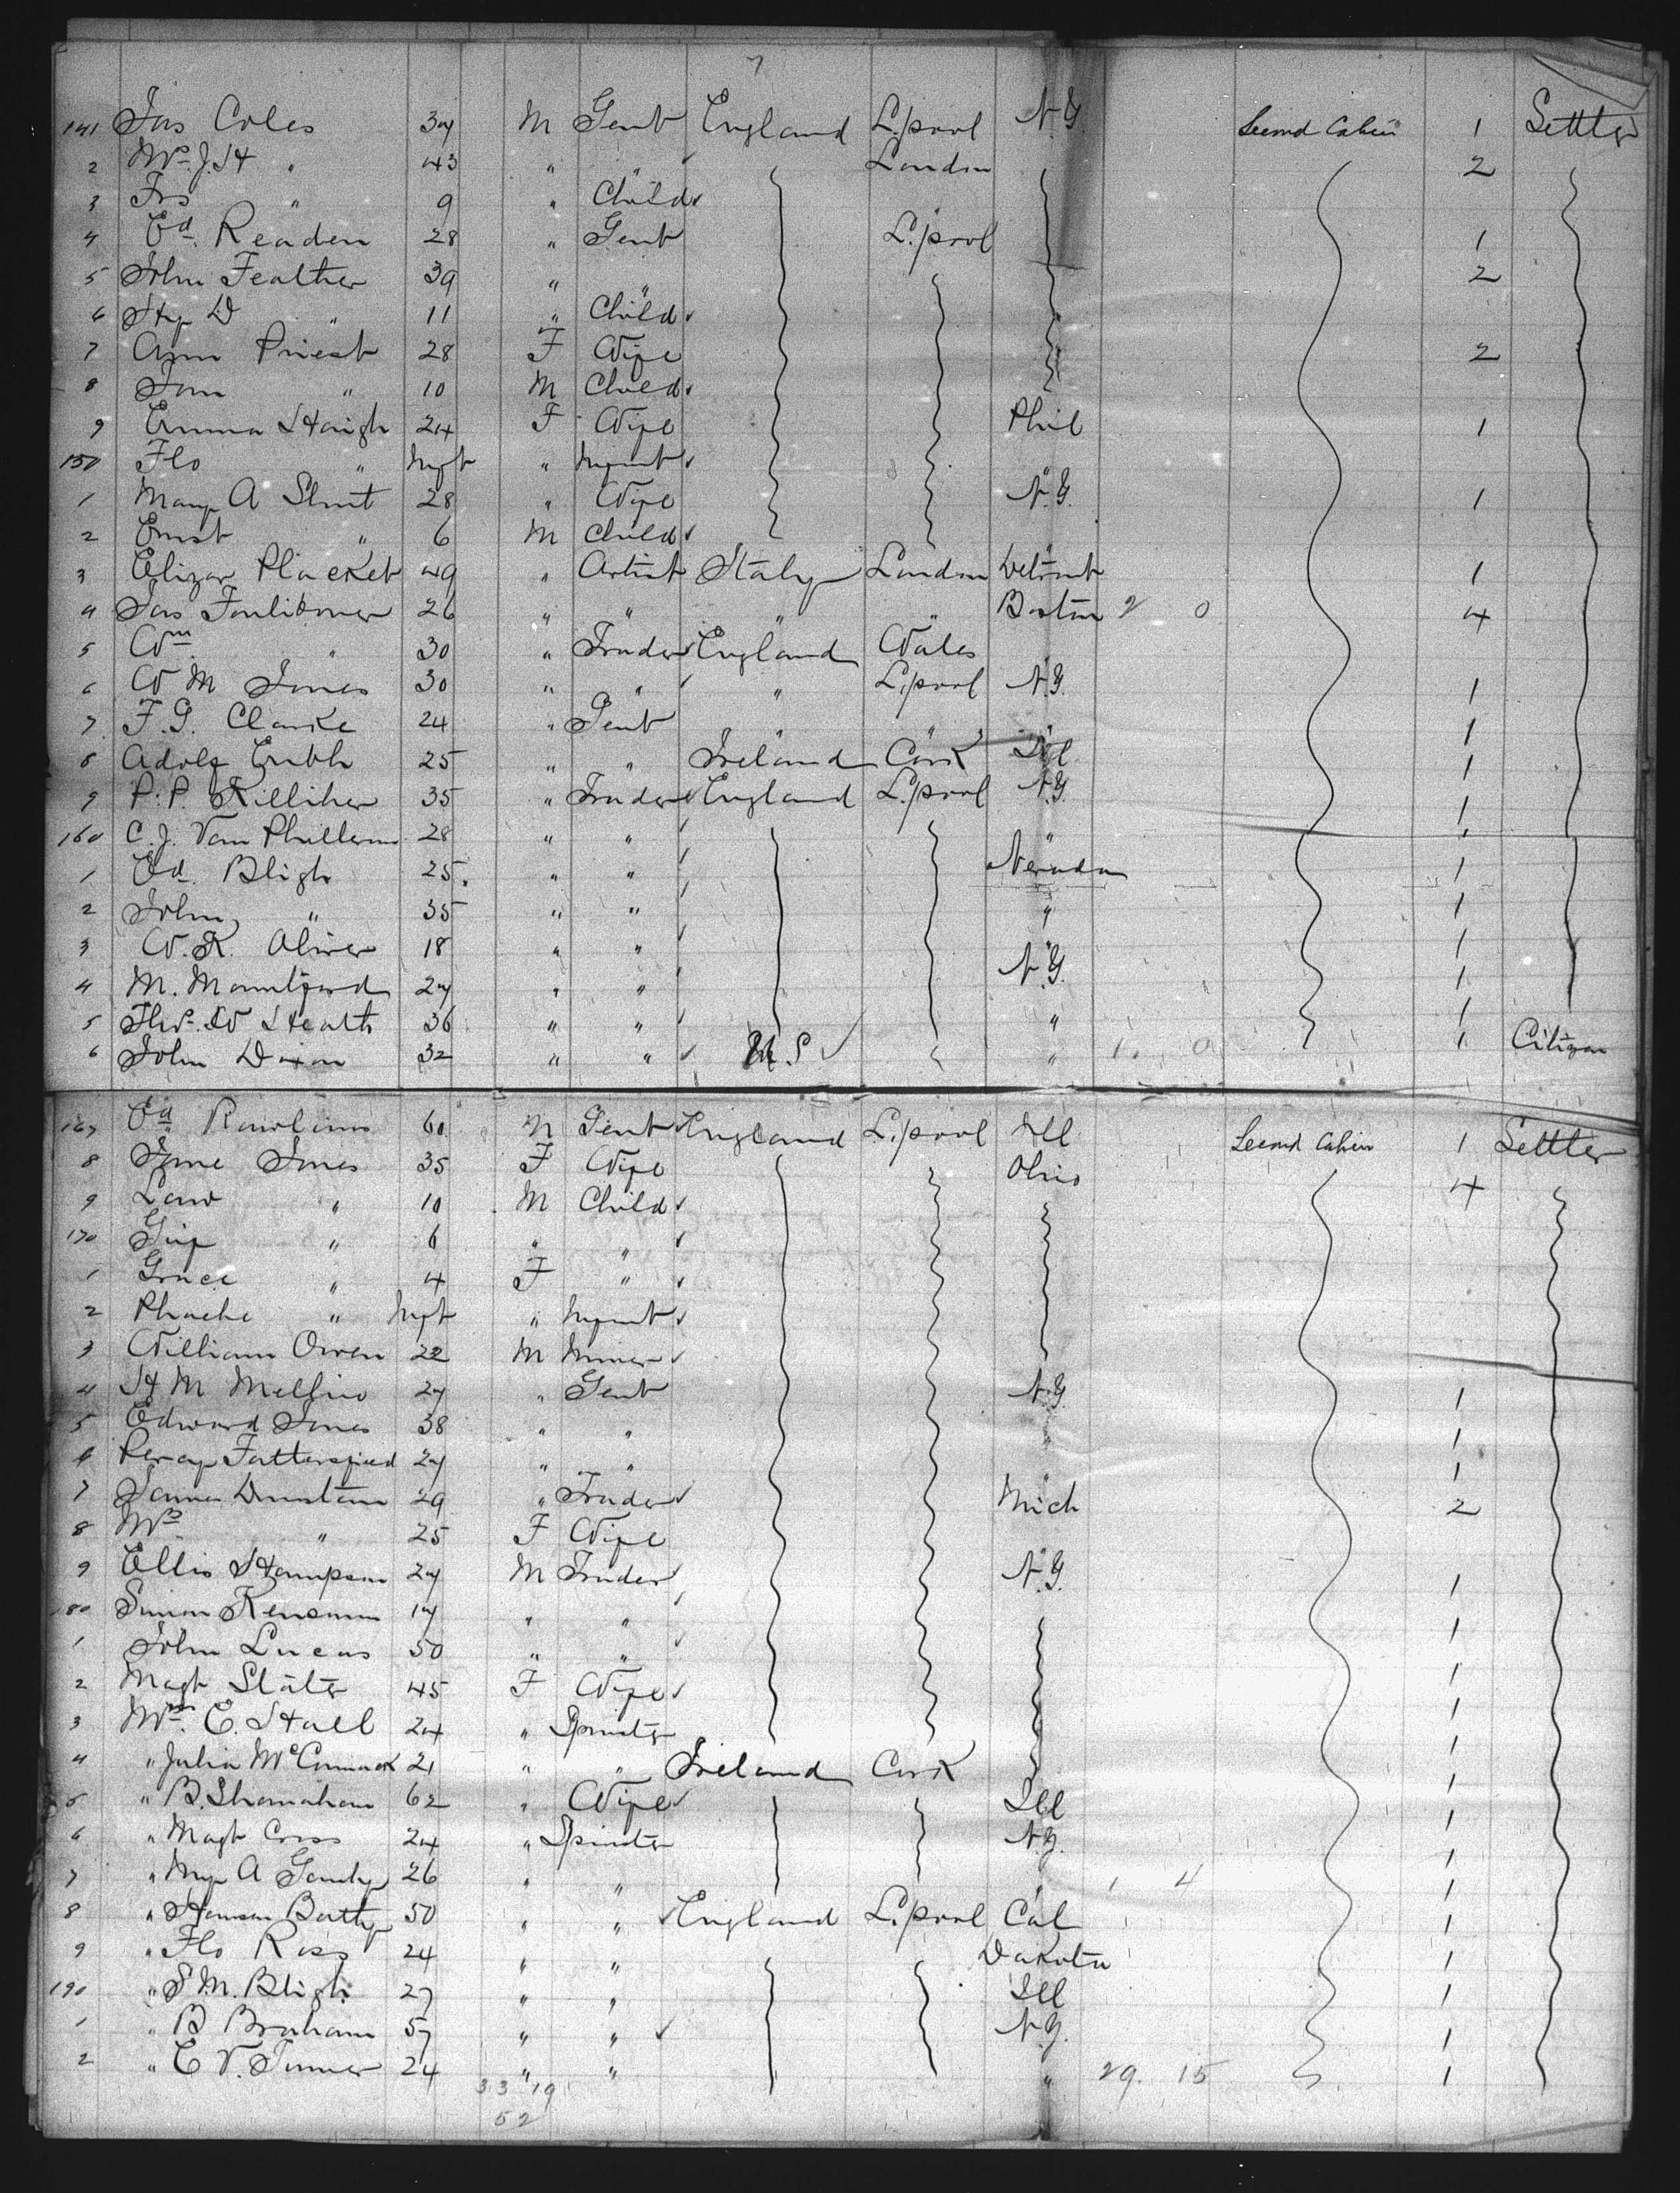 7
141 Jas Coles 37 M Gent England L.pool N.Y. Second Cabin 1 Settler
2 Wm J.H " 43 " " London 2
3 Frs " 9 " Child "
4 Ed. Readen 28 " Gent L.pool 1
5 John Feather 39 " " 2
6 Hry D " 11 " Child
7 Ann Priest 28 F Wife 2
8 Tom " 10 M Child
9 Emma Haigh 24 F Wife Phil 1
150 Flo " Inft " Infant "
1 Mary A Slint 28 " Wife N.Y. 1
2 Ernst " 6 M Child "
3 Placket 49 " Artist Italy London Detroit 1
4 Jas 26 " " " " Boston 2 0 4
5 Wm " 30 " Trader England Wales "
6 W M Jones 30 " " " L.pool N.Y. 1
7 F. G. Clarke 24 " Gent " " " 1
8 Adolf 25 " " Ireland Cork Ill 1
9 P. P. Killiher 35 " Trader England L.pool N.Y. 1
160 C. J. Van 28 " " " 1
1 Ed. Bligh 25 " " Nevada 1
2 John " 35 " " " 1
3 W. K. Oliver 18 " " " 1
4 M. 27 " " N.Y. 1
5 Thos. W Heath 36 " " " 1
6 John Dixon 32 " " U.S " 1. 0 1 Citizen
167 Ed Rawlins 60 M Gent England L.pool Ill Second Cabin 1 Settler
8 Jane Jones 35 F Wife Ohio 4
9 Law " 10 M Child
170 " 6 " "
1 Grace " 4 F "
2 Phoebe " Inft " Infant
3 William Owen 22 M Miner
4 H M 27 " Gent N.Y. 1
5 Edward Jones 38 " " " 1
6 Percy 27 " " " 1
7 James Dunstan 29 " Trader Mich 2
8 Mrs " 25 F Wife "
9 Ellis Hampson 27 M Trader N.Y. 1
180 Simon 17 " " 1
1 John Lucas 50 " " 1
2 Magt Slater 45 F Wife 1
3 Mrs. E. Hall 24 " Spinster 1
4 " Julia McCormack 21 " " Ireland Cork 1
5 " B. Shanahan 62 " Wife Ill 1
6 " Magt Cross 24 " Spinster N.Y. 1
7 " Mry A 26 " " " 1 4 1
8 " Batty 50 " " England L.pool Cal 1
9 " Flo Ross 24 " " Dakota 1
190 " S. M. Bligh 27 " " Ill 1
1 " B Braham 57 " " N.Y. 1
2 " E V. Turner 24 " " " 29. 15 1
33 19
52